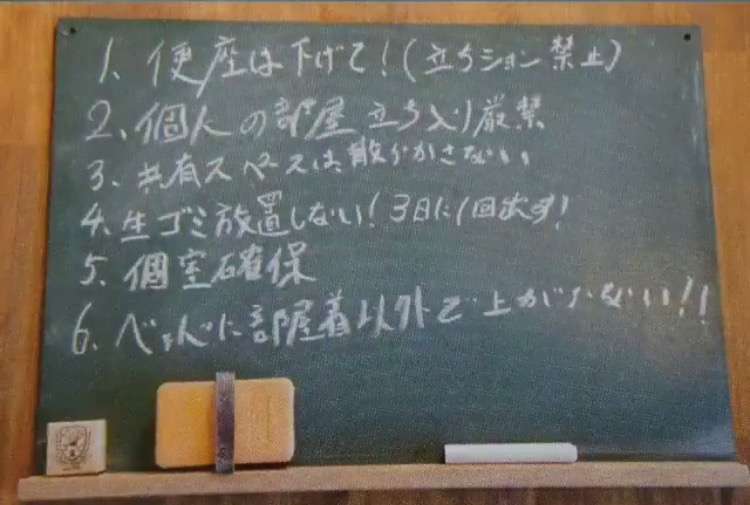 1、便座は下げて!(立ちション禁止)
2、個人の部屋立ち入り厳禁
3、共有スペースは散らかさない
4、生ゴミ放置しない!3日に1回出す!
5、個室確保
6、ベッドに部屋着以外で上がらない!!